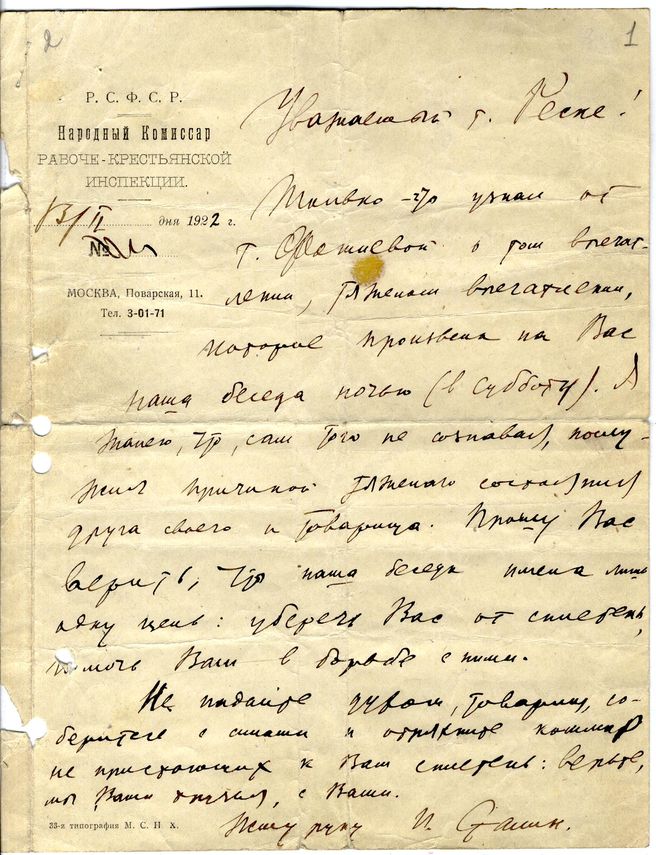 2
1
Р. С. Ф. С. Р.
Народный Комиссар
РАБОЧЕ-КРЕСТЬЯНСКОЙ
ИНСПЕКЦИИ.
13/II дня 1922 г.
№
МОСКВА, Поварская, 11.
Тел. 3-01-71
Уважаемый т. Реске!
Только что узнал от
т. о том впечат-
лении, тяжелом впечатлении,
которое произвела на Вас
наша беседа ночью (в субботу). Я
жалею, что, сам того не сознавая, послу-
жил причиной тяжелаго состояния
друга своего и товарища. Прошу Вас
верить, что наша беседа имела лишь
одну цель: уберечь Вас от сплетень,
помочь Вам в борьбе с ними.
Не падайте духом, товарищ, со-
беритесь с силами и отряхните кошмар
не пристающих к Вам сплетень: верьте,
мы Ваши друзья, с Вами.
Жму руку И. Сталин.
33-я типография М. С. Н. Х.